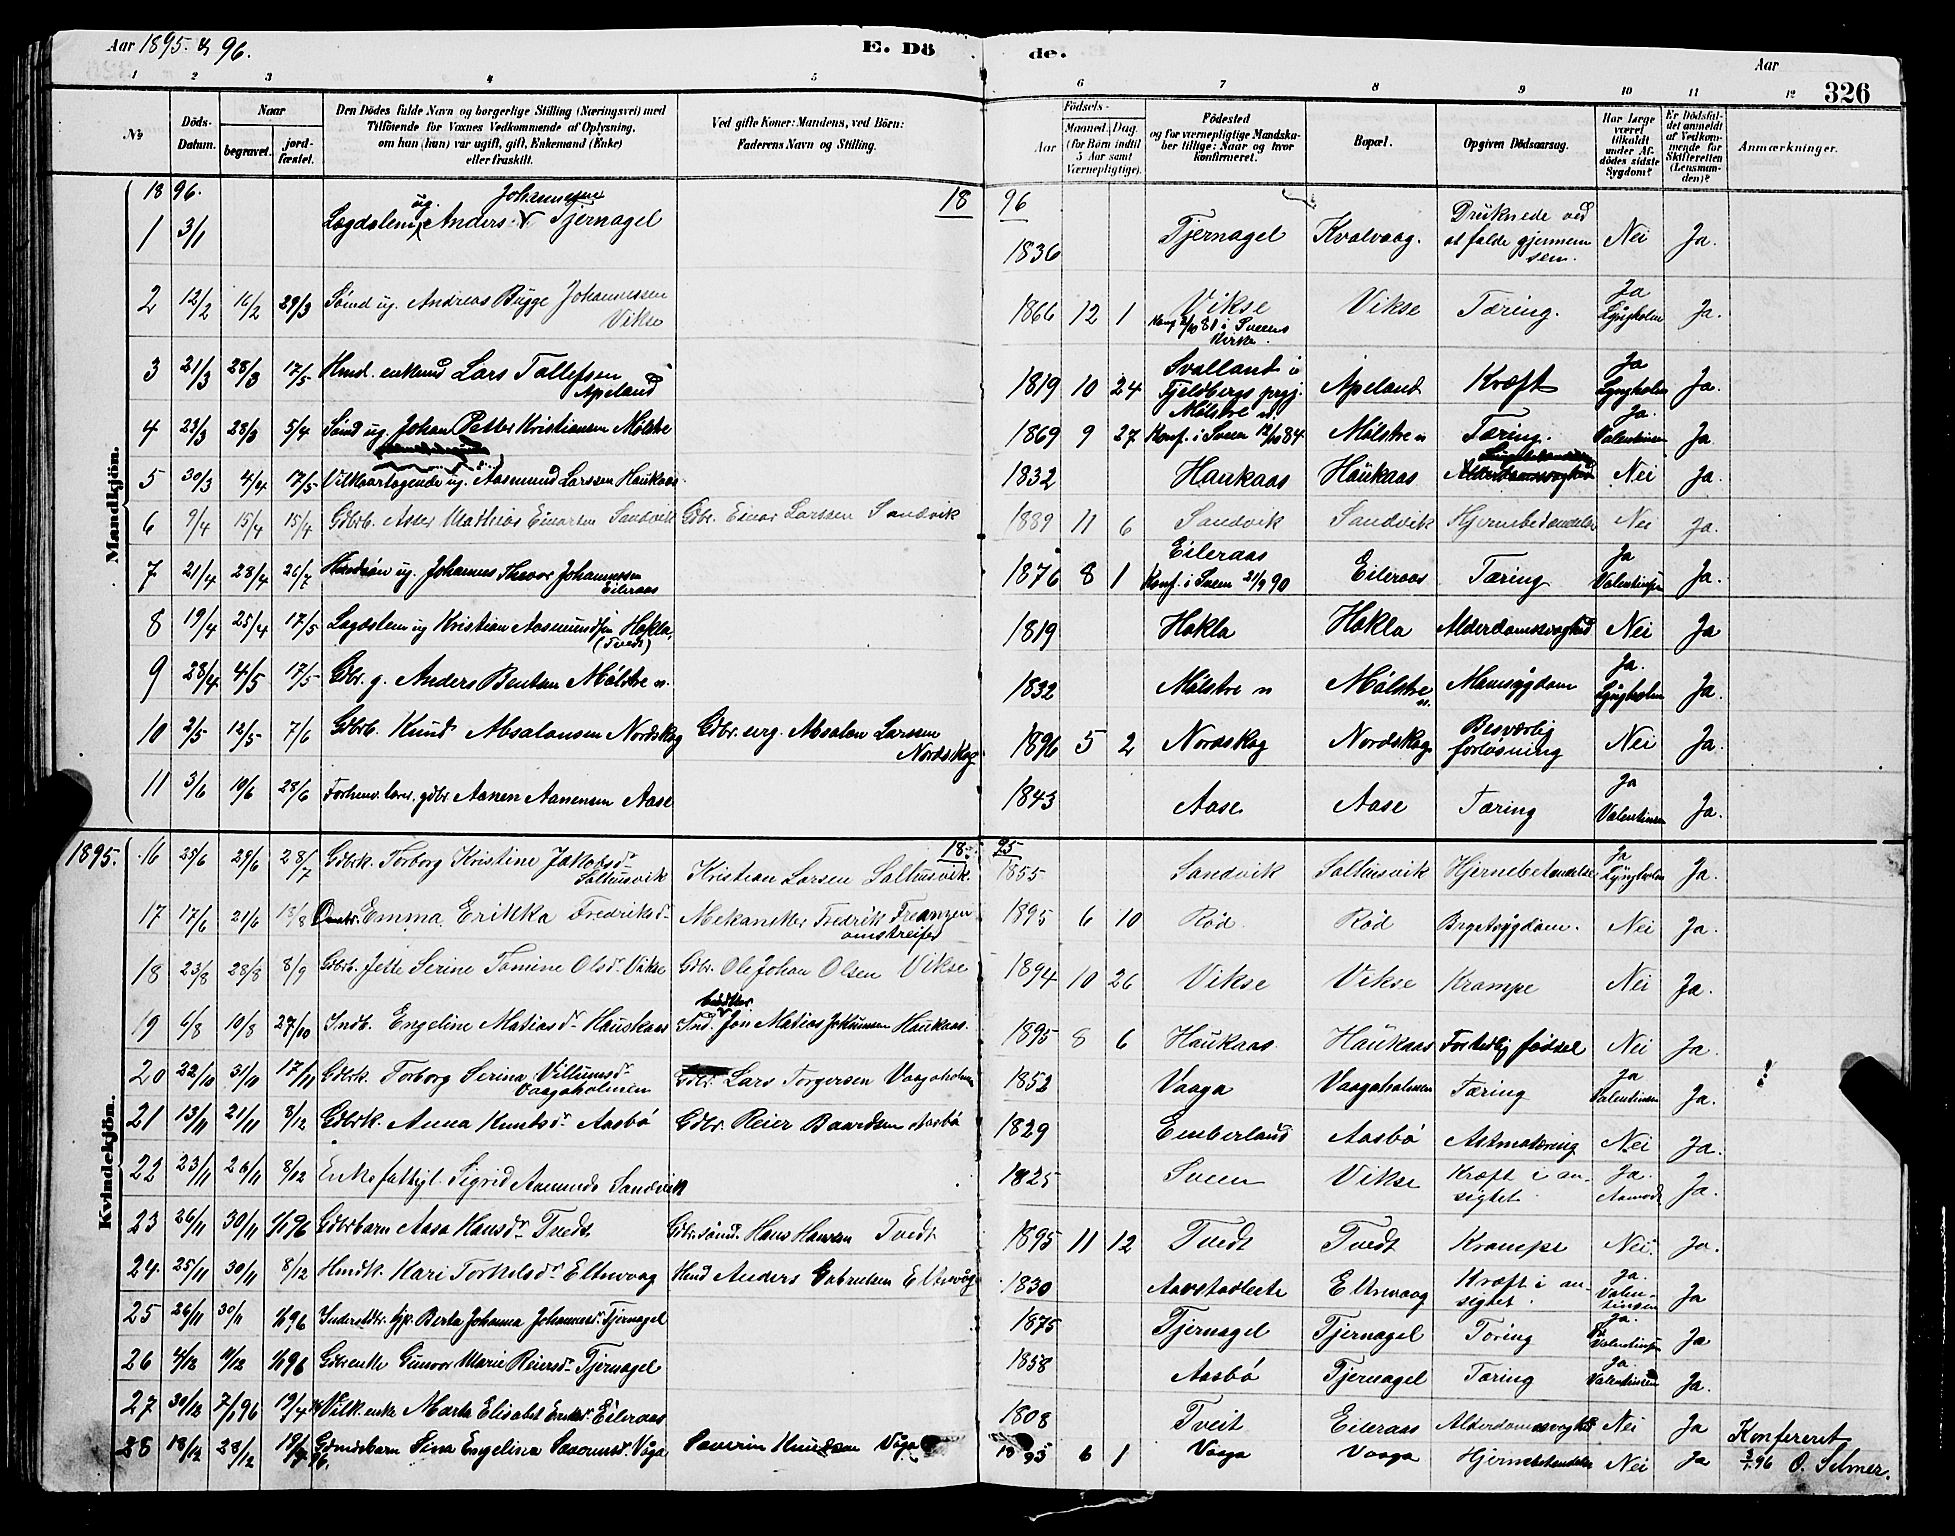 Aar 1895. & 96.
E. Dö
de.
Aar
326
1 2 3 4 5 6 7 8 9 10 11 12
No
Döds-Datum.
Naar
begravet.
jord-fæstet.
Den Dödes fulde Navn og borgerlige Stilling (Næringsvei) med
Tilföiende for Voxnes Vedkommende af Oplysning,
om han (hun) var ugift, gift, Enkemand (Enke)
eller fraskilt.
Ved gifte Koner: Mandens, ved Börn:
Faderens Navn og Stilling.
Födsels-
Aar
Maaned.
Dag.
(for Börn indtil
5 Aar samt
Værnepligtige).
Födested
og for værnepligtige Mandska-
ber tillige: Naar og hvor
konfirmeret.
Bopæl.
Opgiven Dödsaarsag.
Har Læge
været
tilkaldt
under Af-
dödes sidste
Sygdom?
Er Dödsfal-
det anmeldt
af Vedkom-
mende for
Skifteretten
(Lensman-
den)?
Anmærkninger.
Mandkjön.
1896.
1896
1 3/1 Lægdslem ug. Anders Johannessen Tjernagel 1836 Tjernagel Kvalvaag. Druknede ved at falde gjennem isen. Nei Ja.
2 12/2 16/2 29/3 Sönd ug. Andreas Bugge Johannessen Vikse 1866 12 1 Vikse i Sveens Kirke. Vikse Tæring. Ja Lyngholm Ja.
3 21/3 28/3 17/5 Hmd. enkmd Lars Tollefsen Apeland 1819 10 24 Svalland i Fjeldbergs prgj. Apeland Kræft Ja Lyngholm Ja.
4 23/3 28/3 5/4 Sönd ug. Johan Petter Kristiansen Mölstre 1869 9 27 Mölstre n. Konf. i Sveen 12/10 84 Mölstre n Tæring. Ja. Valentinsen Ja
5 30/3 4/4 17/5 Vilkaartagende ug. Aasmund Larssen Haukaas. 1832 Haukaas Haukaas Alderdomssvaghed Nei Ja.
6 9/4 15/4 15/4 Gdbrb. Asser Mathias Einarsen Sandvik Gdbr. Einar Larssen Sandvik 1889 11 6 Sandvik Sandvik Hjernebetændelse Nei Ja.
7 21/4 28/4 26/7 ug. Johannes Thevor Johannessen Eileraas 1876 8 1 Eileraas Konf. i Sveen 21/9 90 Eileraas Tæring Ja Valentinsen Ja.
8 19/4 25/4 17/5 Lægdslem ug Kristian Aasmundsen Hokla, (Tvedt) 1819 Hokla Hokla Alderdomssvaghed Nei Ja
9 28/4 4/5 17/5 Gbr. g. Anders Bentsen Mölstre n. 1832 Mölstre n Mölstre n. Mavesygdom Ja. Lyngholm Ja.
10 2/5 12/5 7/6 Gdbrb. Knud Absalonsen Nordskog Gdbr. Absalon Larssen Nordskog 1896 5 2 Nordskog Nordskog Besværlig forlösning Nei Ja.
11 3/6 10/6 28/6 Forhenv. lærer, gdbr Aanen Aanensen Aase 1843 Aase Aase Tæring Ja Valentinsen Ja.
Kvindekjön.
1895.
1895
16 23/6 29/6 28/7 Gdbrk. Torborg Kristine Jakobsdr. Saltnesvik Kristian Larsen Saltnesvik. 1855 Sandvik Saltnesvik Hjernebetændelse Ja Lyngholm Ja.
17 17/6 21/6 13/8 Emma Erikka Fredriksdr. Mekanikker Fredrik Franzen omstreifer 1895 6 10 Röd. Röd Brystsygdom. Nei Ja.
18 23/8 28/8 8/9 Gdbrb. Jette Serine Tomine Olsdr. Vikse Gdbr. Ole Johan Olsen Vikse 1894 10 26 Vikse Vikse Krampe Nei Ja.
19 6/8 10/8 27/10 Indb. Engeline Matiasdr. Hauskaas Ind. Jon Matias Haukaas. 1895 8 6 Haukaas. Haukaas Fortidlig födsel Nei Ja.
20 22/10 31/10 17/11 Gdbrk. Torborg Serina Villumsdr. Vaagaholmen Gdbr. Lars Torgersen Vaagaholmen 1852 Vaaga Vaagaholmen Tæring Ja Valentinsen Ja.
21 13/11 21/11 8/12 Gdbrk. Anna Knutsdr. Aasbö Gdbr. Reier Baardsen Aasbö 1829 Emberland Aasbö Astmatæring Nei Ja.
22 23/11 26/11 8/12 Enke fattigl. Sigrid Aamunds Sandvik 1825 Sveen Vikse Kræft i an-sigtet. Ja. Aamodt Ja.
23 26/11 30/11 1/1 96 Gdbrbarn Aasa Hansdr. Tvedt Gdbrsönd. Hans Hansen Tvedt 1895 11 12 Tvedt Tvedt Krampe Nei. Ja.
24. 25/11 30/11 8/12 Hmdk. Kari Torkelsdr. Eltnevaag Hmd Anders Gabrielsen Eltnevåg 1830 Eltnevaag Kræft i an-sigtet. Ja. Valen-tinsen Ja
25 26/11 30/11 1/1 96 Berta Johanna Johannesdr. Tjernagel 1875 Tjernagel Tjernagel Tæring Ja. Valentinsen Ja
26 4/12 11/12 1/1 96 Gdbrenke Gunvor Marie Reiersdr. Tjernagel 1858 Aasbö Tjernagel Tæring Ja. Valentinsen Ja.
27 30/12 7/1 96 19/4 Vilk. enke Marta Elisabet Eileraas 1808 Tveit Eileraas Alderdomssvaghed Nei Ja
28 18/12 28/12 19/4 96. Gdmdsbarn Sina Engelina Severinsdr. Våga Severin Knudsen Våga 1895 6 1 Vaaga Vaaga Hjernebetændelse Nei Ja
Konfereret
3/1 96 O. Selmer.